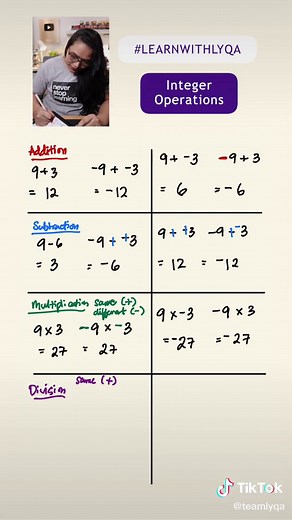 #LEARNWITHLYQA
never
stop
learning
Integer
Operations
Addition
9+3 -9 + -3 9 + -3 -9 + 3
= 12 = -12 = 6 = -6
Subtraction
9-6 -9 + +3 9 + +3 -9 + -3
= 3 = -6 = 12 = -12
Multiplication same (+)
different (-)
9 x 3 -9 x -3 9 x -3 -9 x 3
= 27 = 27 = -27 = -27
Division same (+)
TikTok
@teamlyqa